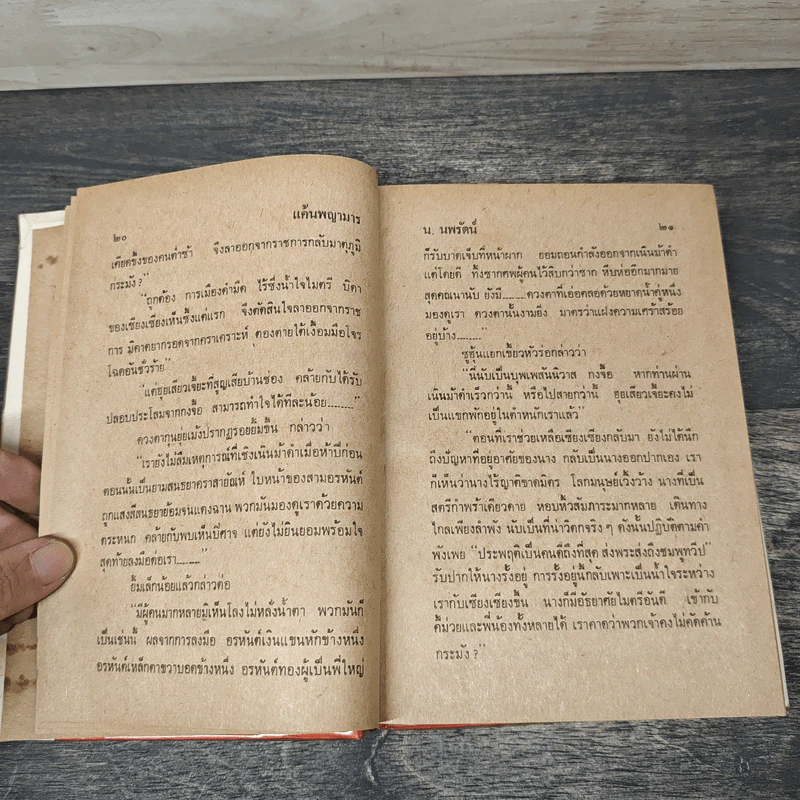 ๒๐
แค้นพญามาร
เคียดขึ้งของคนต่ำช้า จึงลาออกจากราชการกลับมาตุภูมิ
กระมัง ?"
"ถูกต้อง การเมืองดำมืด ไร้ซึ่งน้ำใจไมตรี บิดา
ของเซียงเซียงเห็นซึ้งแต่แรก จึงตัดสินใจลาออกจากราช
การ มิคาดยากรอดจากคราเคราะห์ ตกตายใต้เงื้อมมือโจร
โฉดอันชั่วร้าย"
"แต่ฮุยเสียวเจี้ยะที่สูญเสียบ้านช่อง คล้ายกับได้รับ
ปลอบประโลมจากกงจื้อ สามารถทำใจได้ทีละน้อย........"
ดวงตากุนยุ่ยเม้งปรากฏรอยยิ้มขึ้น กล่าวว่า
"เรายังไม่ลืมเหตุการณ์ที่เชิงเนินม้าดำเมื่อห้าปีก่อน
ตอนนั้นเป็นยามสนธยาคราสายัณห์ ใบหน้าของสามอรหันต์
ถูกแสงสีสนธยาย้อมจนแดงฉาน พวกมันมองดูเราด้วยความ
ตระหนก คล้ายกับพบเห็นปีศาจ แต่ยังไม่ยินยอมพร้อมใจ
สุดท้ายลงมือต่อเรา........"
ยิ้มเล็กน้อยแล้วกล่าวต่อ
"มีผู้คนมากหลายมิเห็นโลงไม่หลั่งน้ำตา พวกมันก็
เป็นเช่นนี้ ผลจากการลงมือ อรหันต์เงินแขนหักข้างหนึ่ง
อรหันต์เหล็กตาขวาบอดข้างหนึ่ง อรหันต์ทองผู้เป็นพี่ใหญ่
น. นพรัตน์
๒๑
ก็รับบาดเจ็บที่หน้าผาก ยอมถอนกำลังออกจากเนินม้าดำ
แต่โดยดี ทิ้งซากศพผู้คนไว้สิบกว่าซาก หีบห่ออีกมากมาย
สุดคณานับ ยังมี........ดวงตาที่เอ่อคลอด้วยหยาดน้ำคู่หนึ่ง
มองดูเรา ดวงตานั้นงามยิ่ง มาตรว่าแฝงความเศร้าสร้อย
อยู่บ้าง........"
ซูฮุ้นแยกเขี้ยวหัวร่อกล่าวว่า
"นี่นับเป็นบุพเพสันนิวาส กงจื้อ หากท่านผ่าน
เนินม้าดำเร็วกว่านี้ หรือไปสายกว่านี้ ฮุยเสียวเจี้ยะคงไม่
เป็นแขกพักอยู่ในตำหนักเราแล้ว"
"ตอนที่เราช่วยเหลือเซียงเซียงกลับมา ยังไม่ได้นึก
ถึงปัญหาที่อยู่อาศัยของนาง กลับเป็นนางออกปากเอง เรา
ก็เห็นว่านางไร้ญาติขาดมิตร โลกมนุษย์เวิ้งว้าง นางที่เป็น
สตรีกำพร้าเดียวดาย หอบหิ้วสัมภาระมากหลาย เดินทาง
ไกลเพียงลำพัง นับเป็นที่น่าวิตกจริง ๆ ดังนั้นปฏิบัติตามคำ
พังเพย "ประพฤติเป็นคนดีถึงที่สุด ส่งพระส่งถึงชมพูทวีป"
รับปากให้นางรั้งอยู่ การรั้งอยู่นี้กลับเพาะเป็นน้ำใจระหว่าง
เรากับเซียงเซียงขึ้น นางก็มีอัธยาศัยไมตรีอันดี เข้ากับ
คี้ม่วยและพี่น้องทั้งหลายได้ เราคาดว่าพวกเจ้าคงไม่คัดค้าน
กระมัง ?"